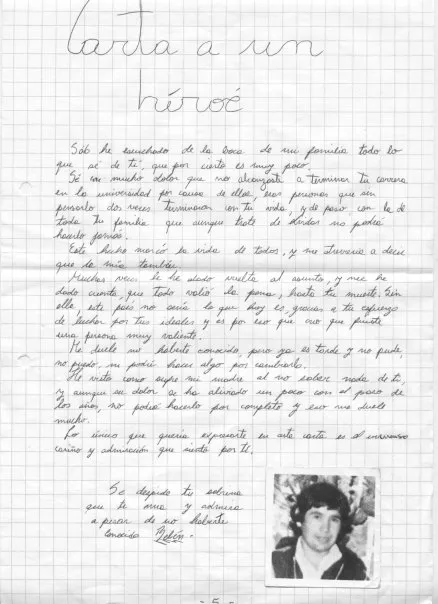 Carta a un
héroé
Sólo he escuchado de la boca de mi familia todo lo
que sé de tí, que por cierto es muy poco.
Sé con mucho dolor que no alcanzaste a terminar tu carrera
en la universidad por causa de ellos, esas personas que sin
pensarlo dos veces terminaron con tu vida, y de paso con la de
toda tu familia que aunque trate de olvidar no podrá
hacerlo jamás.
Este hecho marcó la vida de todos, y me atrevería a decir
que la mía también.
Muchas veces le he dado vuelta al asunto, y me he
dado cuenta que todo valió la pena, hasta tu muerte. Sin
ella, este país no sería lo que hoy es, gracias a tu esfuerzo
de luchar por tus ideales y es por eso que creo que fuiste
una persona muy valiente.
Me duele no haberte conocido, pero ya es tarde y no pude,
no puedo, ni podré hacer algo por cambiarlo.
He visto como sufre mi madre al no saber nada de tí,
y aunque su dolor se ha aliviado un poco con el paso de
los años, no podrá hacerlo por completo y eso me duele
mucho.
Lo único que quería expresarte en esta carta es el inmenso
cariño y admiración que siento por tí.
Se despide tu sobrina
que te ama y admira
a pesar de no haberte
conocido
- 5 -